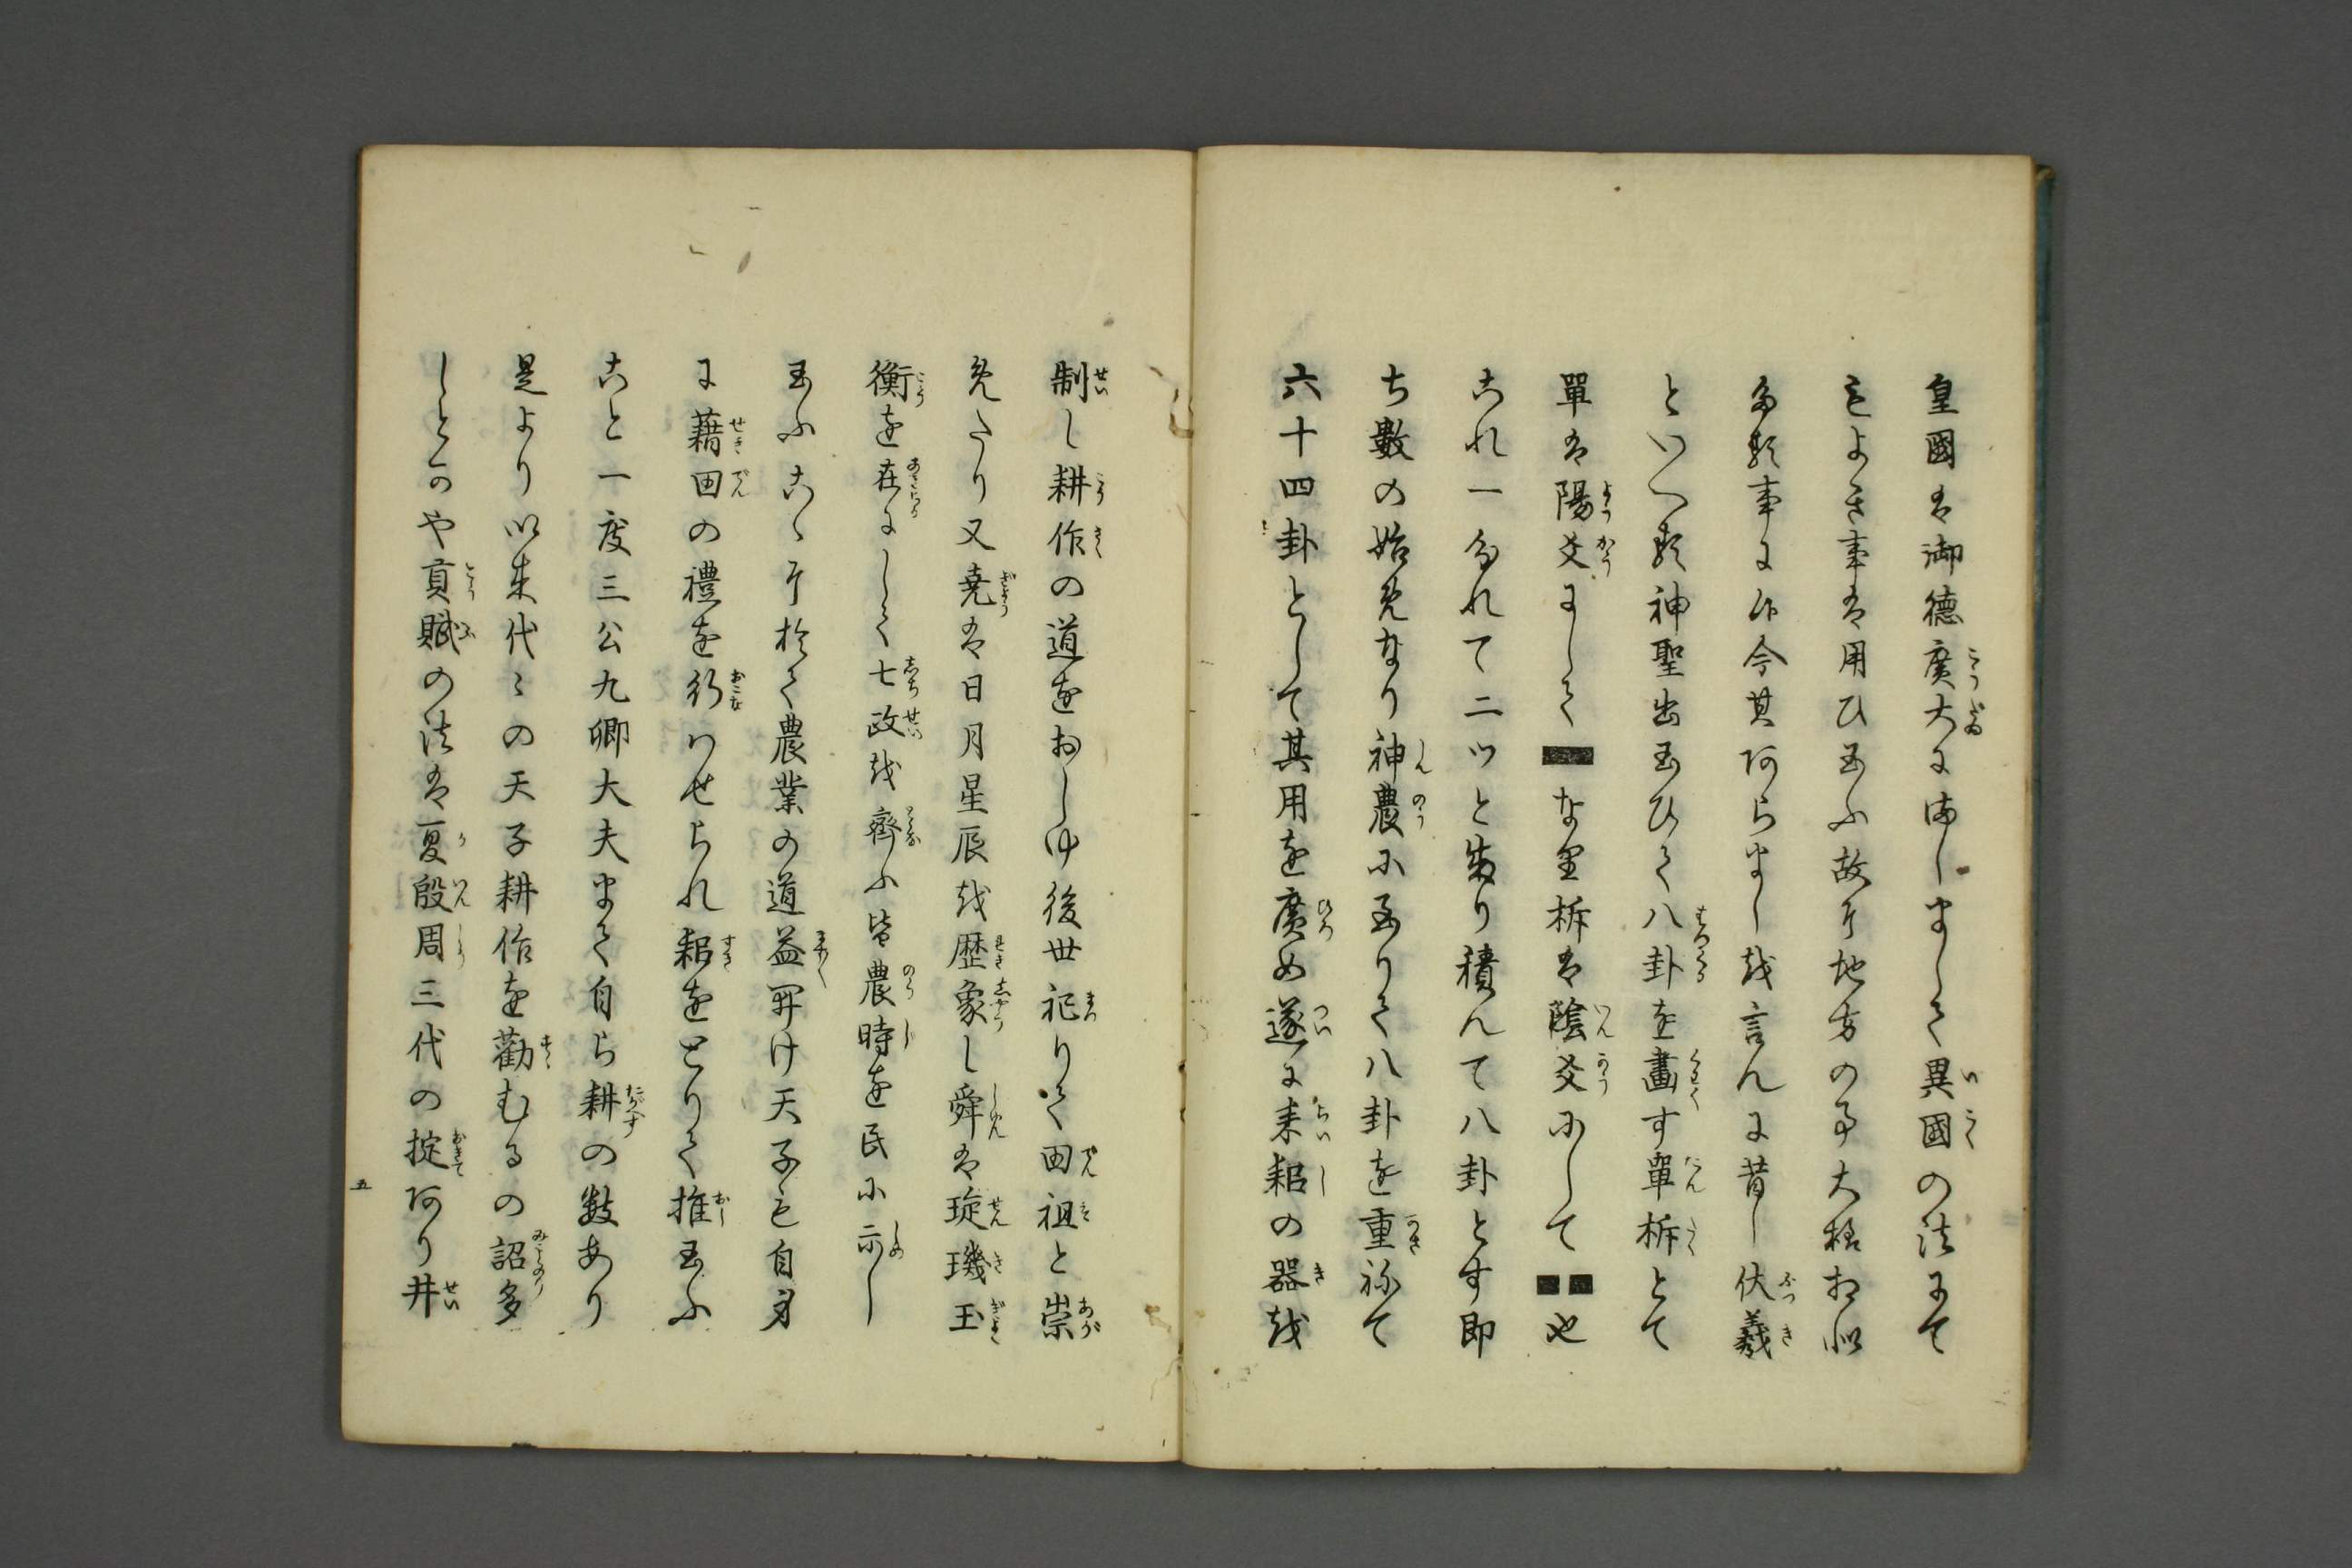 皇國は御德廣大にましまして異國の法にて
もよき事は用ひ玉ふ故に地方の事大槩相似
たる事に候今其あらましを言んに昔し伏羲
といへる神聖出玉ひて八卦を畫す單拆とて
單は陽爻にして ━ なり拆は陰爻にして ╍ 也
これ一分れて二ツと成り積んて八卦とす即
ち數の始めなり神農に至りて八卦を重ねて
六十四卦として其用を廣め遂に耒耜の器を
制し耕作の道をおしゆ後世祀りて田祖と崇
めたり又堯は日月星辰を歴象し舜は琁璣玉
衡を在にして七政を齊ふ皆農時を民に示し
玉ふこゝに於て農業の道益開け天子も自身
に藉田の禮を行わせられ耜をとりて推玉ふ
こと一度三公九卿大夫まて自ら耕の數あり
是より以来代々の天子耕作を勸むるの詔多
しとかや貢賦の法は夏殷周三代の掟あり井
五